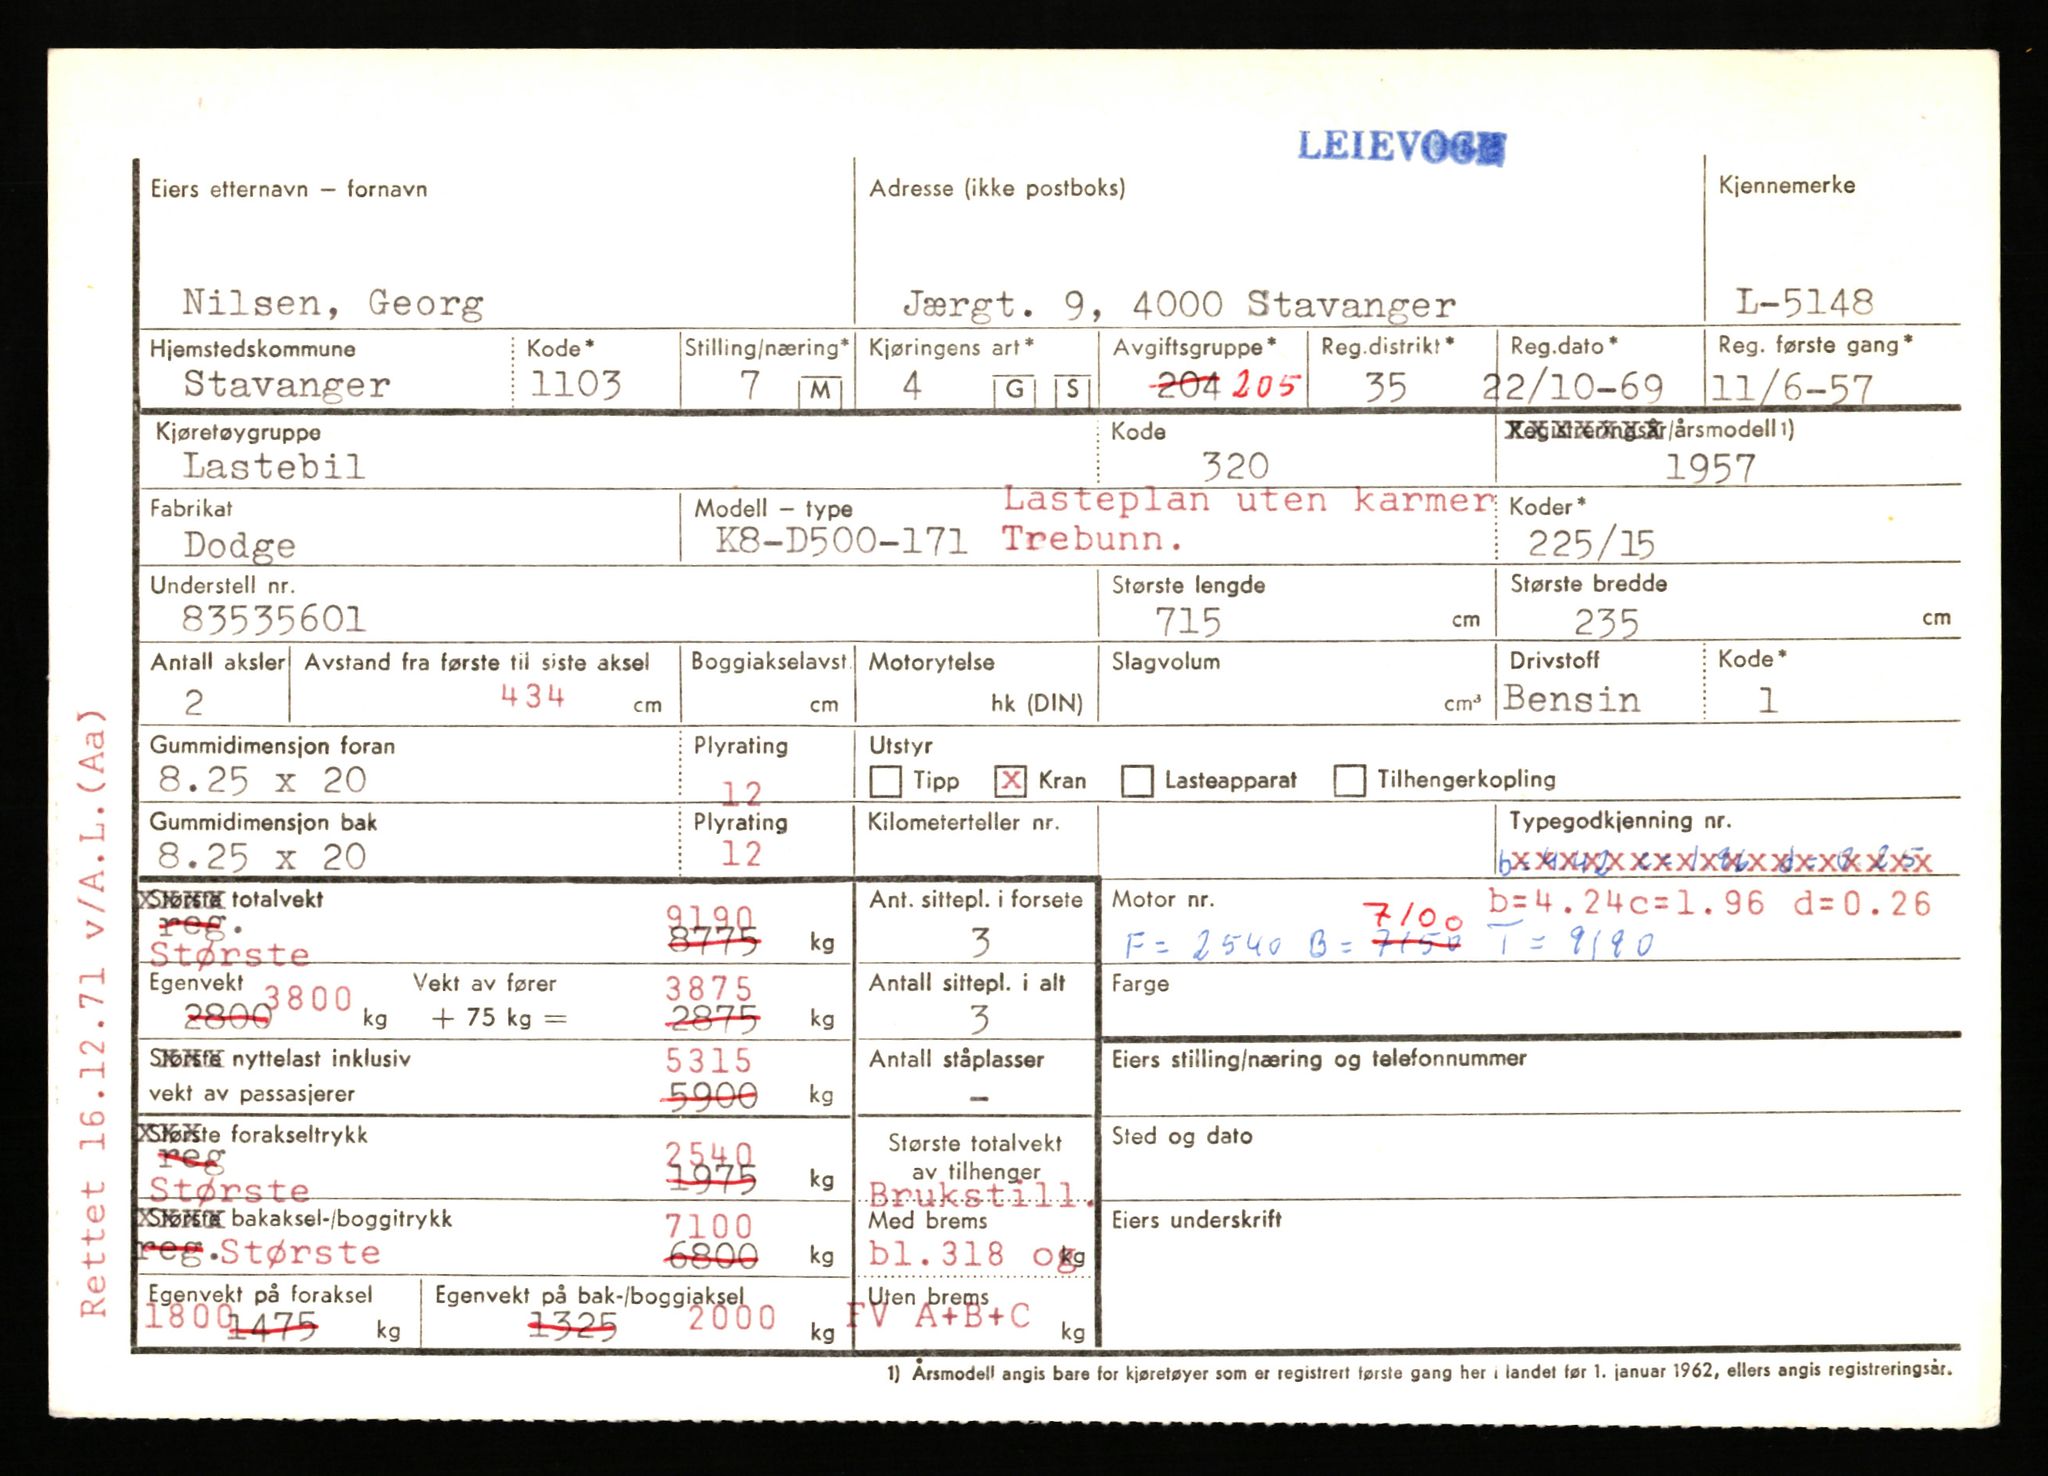 LEIEVOGN
Eiers etternavn – fornavn Adresse (ikke postboks) Kjennemerke
Nilsen, Georg Jærgt. 9, 4000 Stavanger L-5148
Hjemstedskommune Kode* Stilling/næring* Kjøringens art* Avgiftsgruppe* Reg.distrikt* Reg.dato* Reg. første gang*
Stavanger 1103 7 M 4 G S 204 205 35 22/10-69 11/6-57
Kjøretøygruppe Kode Registreringsår/årsmodell 1)
Lastebil 320 1957
Fabrikat Modell – type Lasteplan uten karmer Koder*
Dodge K8-D500-171 Trebunn. 225/15
Understell nr. Største lengde Største bredde
83535601 715 cm 235 cm
Antall aksler Avstand fra første til siste aksel Boggiakselavst. Motorytelse Slagvolum Drivstoff Kode*
2 434 cm cm hk (DIN) cm³ Bensin 1
Gummidimensjon foran Plyrating Utstyr
8.25 x 20 12 Tipp X Kran Lasteapparat Tilhengerkopling
Gummidimensjon bak Plyrating Kilometerteller nr. Typegodkjenning nr.
8.25 x 20 12
Største totalvekt 9190 Ant. sittepl. i forsete Motor nr. b=4.24c=1.96 d=0.26
reg. 8775 kg 3 7100
Største F = 2540 B = 7150 T = 9190
Egenvekt 3800 Vekt av fører 3875 Antall sittepl. i alt Farge
2800 kg + 75 kg = 2875 kg 3
Største nyttelast inklusiv 5315 Antall ståplasser Eiers stilling/næring og telefonnummer
vekt av passasjerer 5900 kg –
Største forakseltrykk 2540 Største totalvekt Sted og dato
reg 1975 kg av tilhenger
Største Brukstill.
Største bakaksel-/boggitrykk 7100 Med brems Eiers underskrift
reg. Største 6800 kg bl.318 og kg
Egenvekt på foraksel Egenvekt på bak-/boggiaksel Uten brems
1800 1475 kg 1325 2000 kg FV A+B+C kg
1) Årsmodell angis bare for kjøretøyer som er registrert første gang her i landet før 1. januar 1962, ellers angis registreringsår.
Rettet 16.12.71 v/A.L.(Aa)